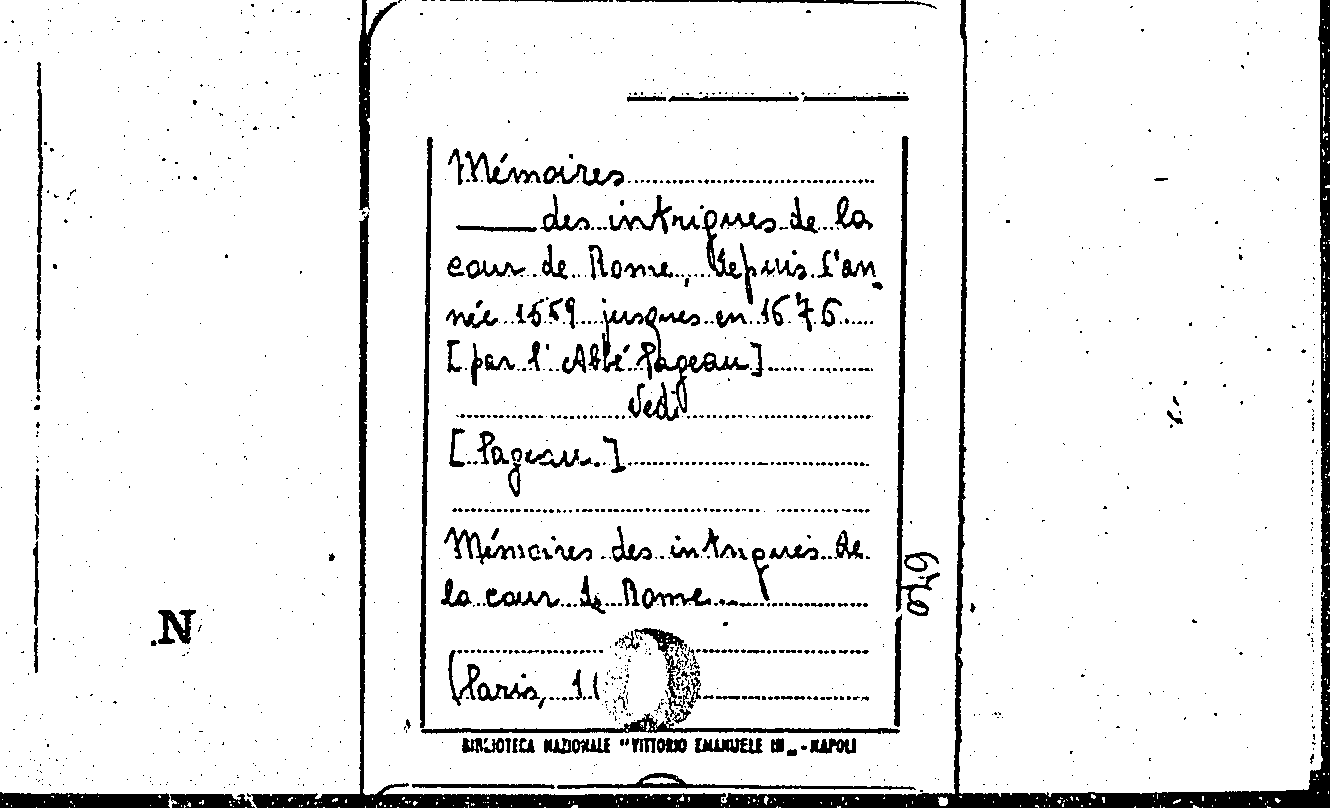 Mémoires
des intrigues de la
cour de Rome, depuis l'an
née 1669 jusques en 1676
[par l'Abbé Pageau]
Vedi
[Pageau.]
Mémoires des intrigues de
la cour de Rome...
(Paris,
670
N
BIBLIOTECA NAZIONALE "VITTORIO EMANUELE III„ - NAPOLI